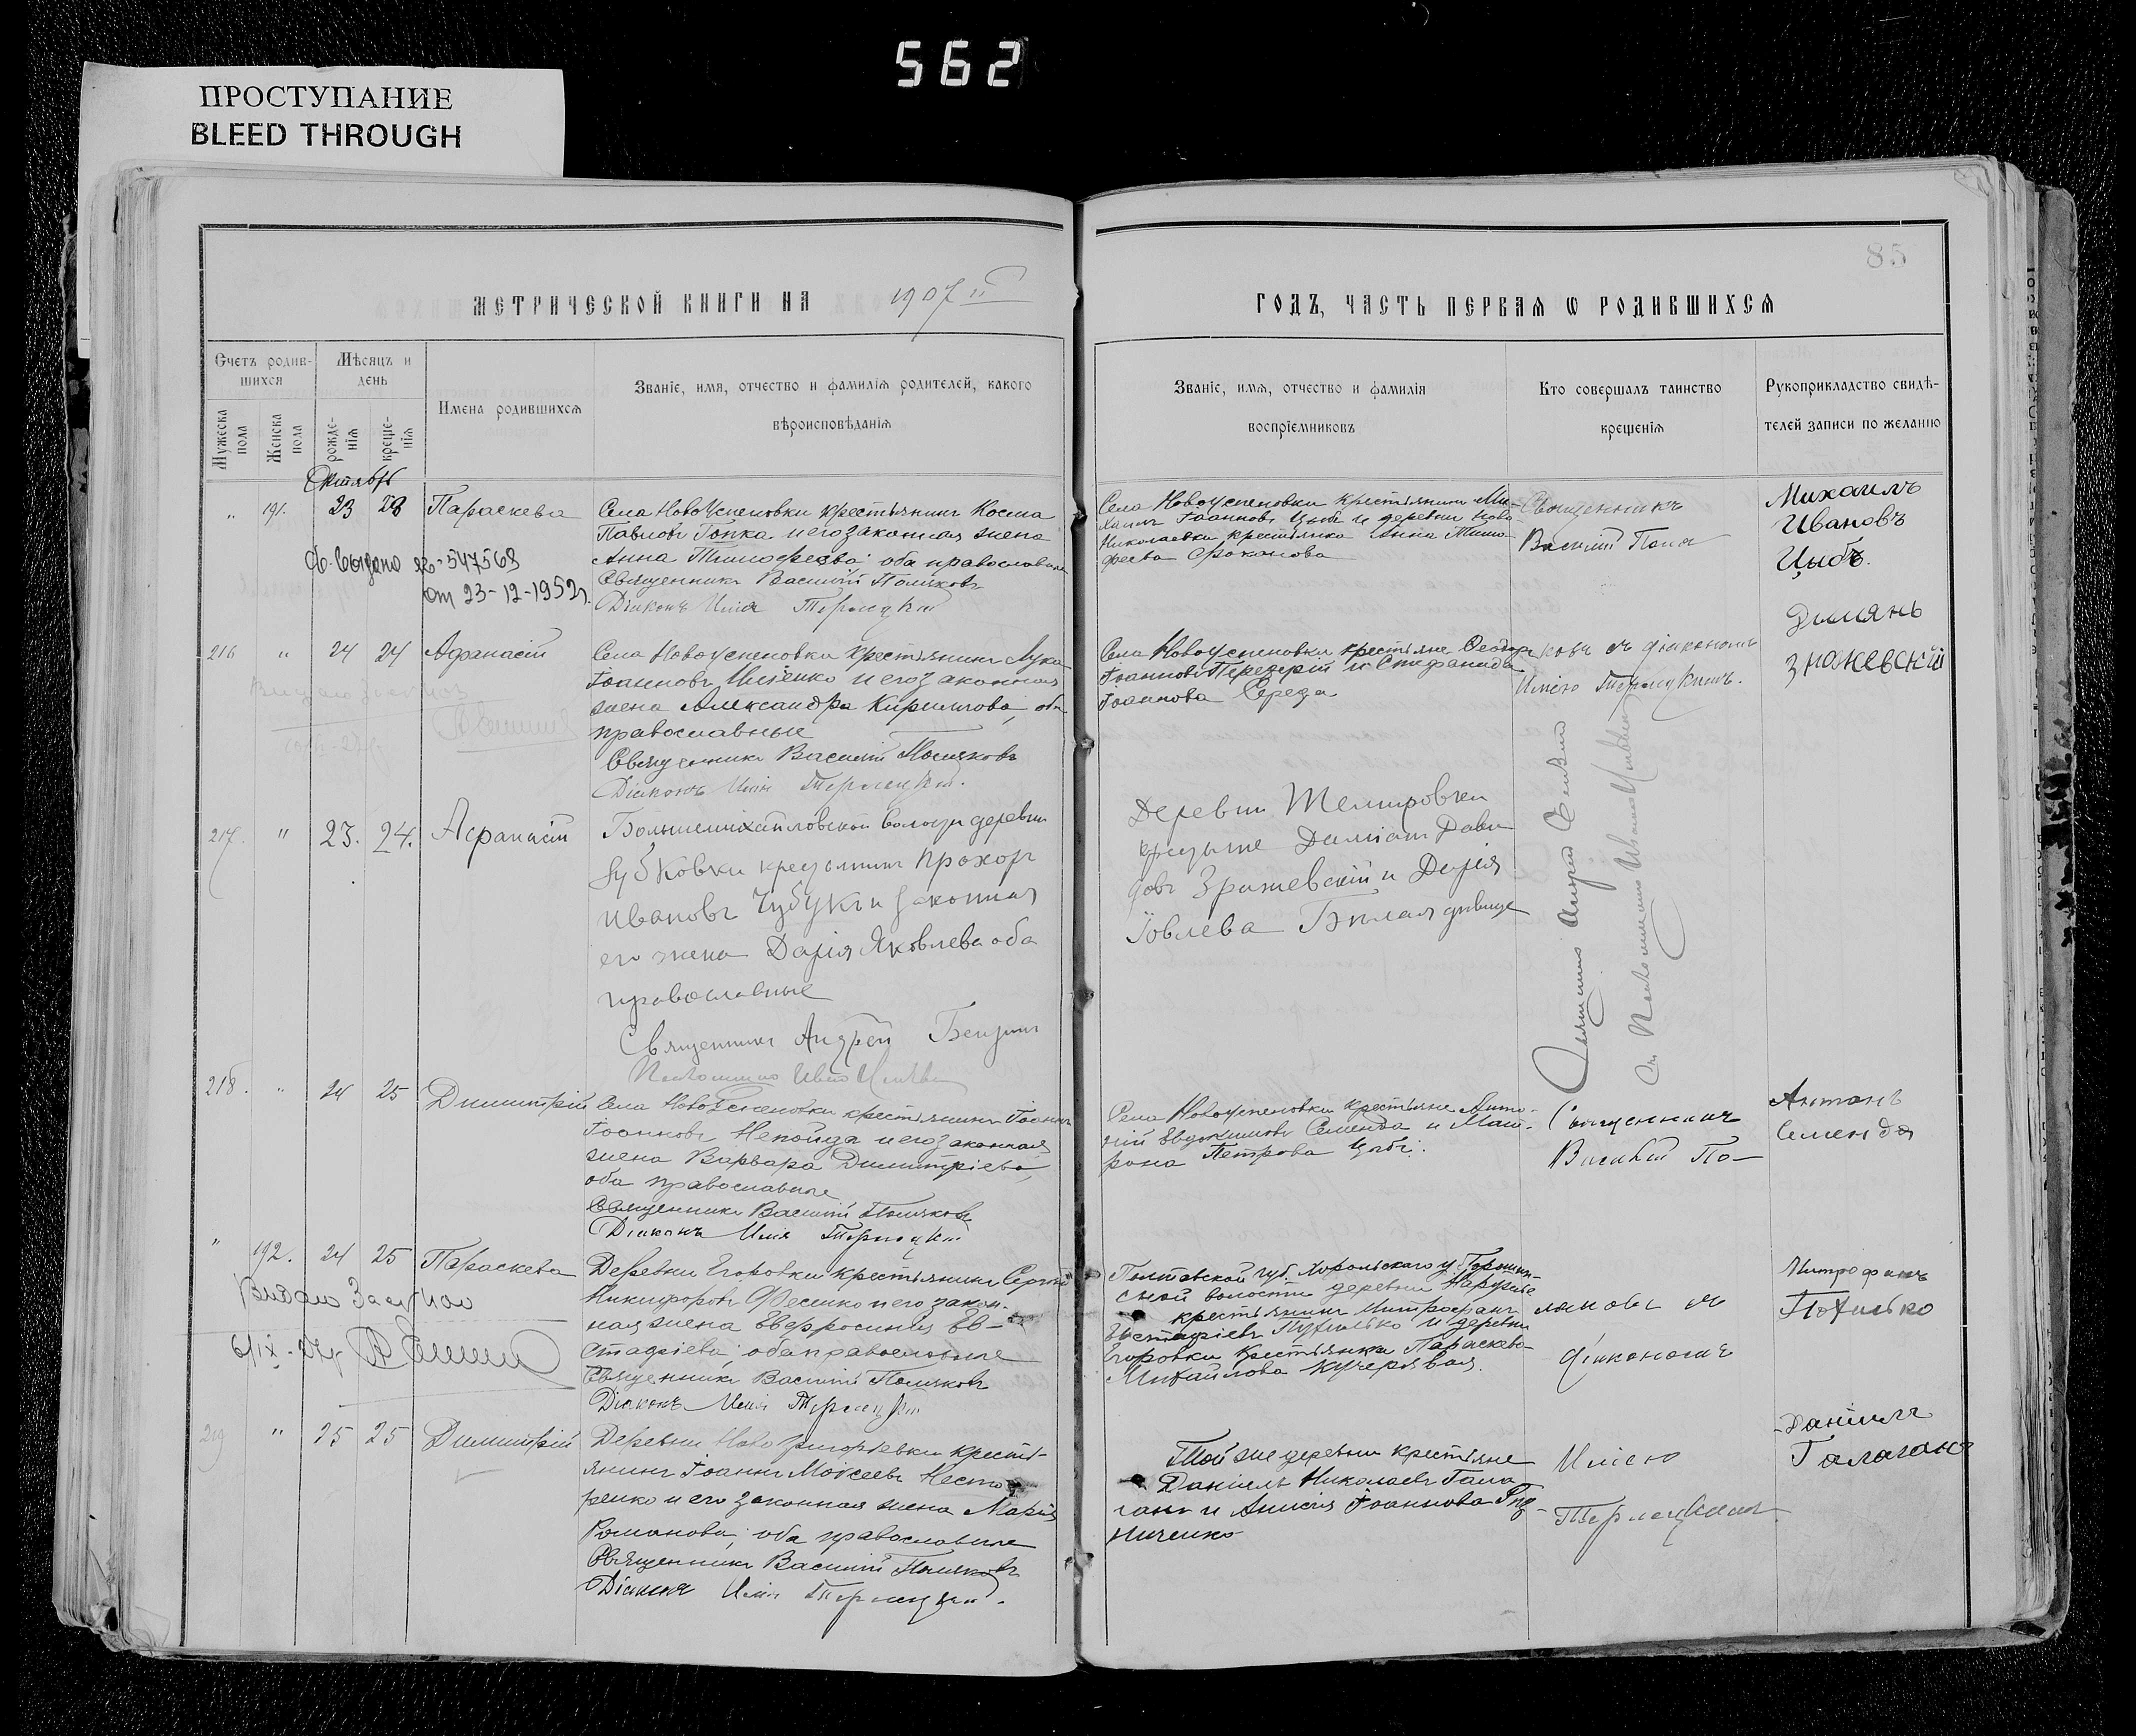 562
ПРОСТУПАНИЕ
BLEED THROUGH
85
МЕТРИЧЕСКОЙ КНИГИ НА 1907 й
ГОДЪ, ЧАСТЬ ПЕРВАѦ Ѡ РОДИВШИХСѦ
Счетъ родив-
шихся
Мужеска пола
Женска пола
Мѣсяцъ и
день
рожде-
нія
креще-
нія
Имена родившихсѧ
Званіе, имя, отчество и фамилія родителей, какого
вѣроисповѣданіѧ
Званіе, имѧ, отчество и фамилія
воспріемниковъ
Кто совершалъ таинство
крещеніѧ
Рукоприкладство свидѣ-
телей записи по желанію
Октябрь
" 191. 23 28 Параскева
Села Новоуспеновки крестьянинъ Косма
Павловъ Гопка и его законная жена
Анна Тимофеева; оба православные
Священникъ Василій Поляковъ
Діаконъ Илія Терлецкій
Св. выдано яз-547568
от 23-12-1952г.
Села Новоуспеновки крестьянинъ Ми-
хаилъ Іоанновъ Цыбъ и деревни Ново
Николаевки крестьянка Анна Тимо-
феева
Священникъ
Василій Поля
Михаилъ
Ивановъ
Цыбъ.
216 " 24 24 Афанасій
Села Новоуспеновки крестьянинъ Лука
Іоанновъ Ильенко и его законная
жена Александра Кириллова, оба
православные
Священникъ Василій Поляковъ
Діаконъ Илія Терлецкій.
Села Новоуспеновки крестьяне Ѳеодоръ
Іоанновъ и Стефанида
Іоаннова Середа
ковъ съ діакономъ
Иліею Терлецкимъ.
Думянъ
Зражевскій
217. " 23. 24. Афанасій
Большемихайловской волости деревни
крестьянинъ Прохоръ
Ивановъ Чубукъ и законная
его жена Дарія Яковлева оба
православные
Священникъ Андрей
Деревни Темировки
крестьяне Даміанъ Дави
довъ Зражевскій и Дарія
Іовлева Бѣлая дѣвица
218. " 24 25 Димитрій
Села Новоуспеновки крестьянинъ Іоаннъ
Іоанновъ Непойда и его законная
жена Варвара Димитріева,
оба православные
Священникъ Василій Поляковъ
Діаконъ Илія Терлецкій
Села Новоуспеновки крестьяне Анто-
ній Евдокимовъ Семенда и Мат-
рона Петрова Цыбъ.
Священникъ
Василій По-
Антонъ
Семенда
" 192. 24 25 Параскева
Деревни Егоровки крестьянинъ Сергій
Никифоровъ Фесенко и его закон-
ная жена Евфросинія Ев-
стафіева; оба православные
Священникъ Василій Поляковъ
Діаконъ Илія Терлецкій
6/IX-27г
Полтавской губ. Хорольскаго у.
ской волости деревни
крестьянинъ Митрофанъ
Евстафіевъ и деревни
Егоровки крестьянка Параскева
Михайлова Кучерявая.
ляковъ съ
діакономъ
Митрофанъ
219 " 25 25 Димитрій
Деревни Ново Григорьевки кресть-
янинъ Іоаннъ Моѵсеевъ Несто-
ренко и его законная жена Марія
Романова; оба православные
Священникъ Василій Поляковъ
Діаконъ Илія Терлецкій.
Той же деревни крестьяне
Даніилъ Николаевъ Гала
ганъ и Анисія Іоаннова
Иліею
Терлецкимъ.
Даніилъ
Галаганъ